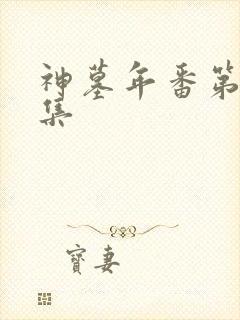 神墓年番第
集
寶妻